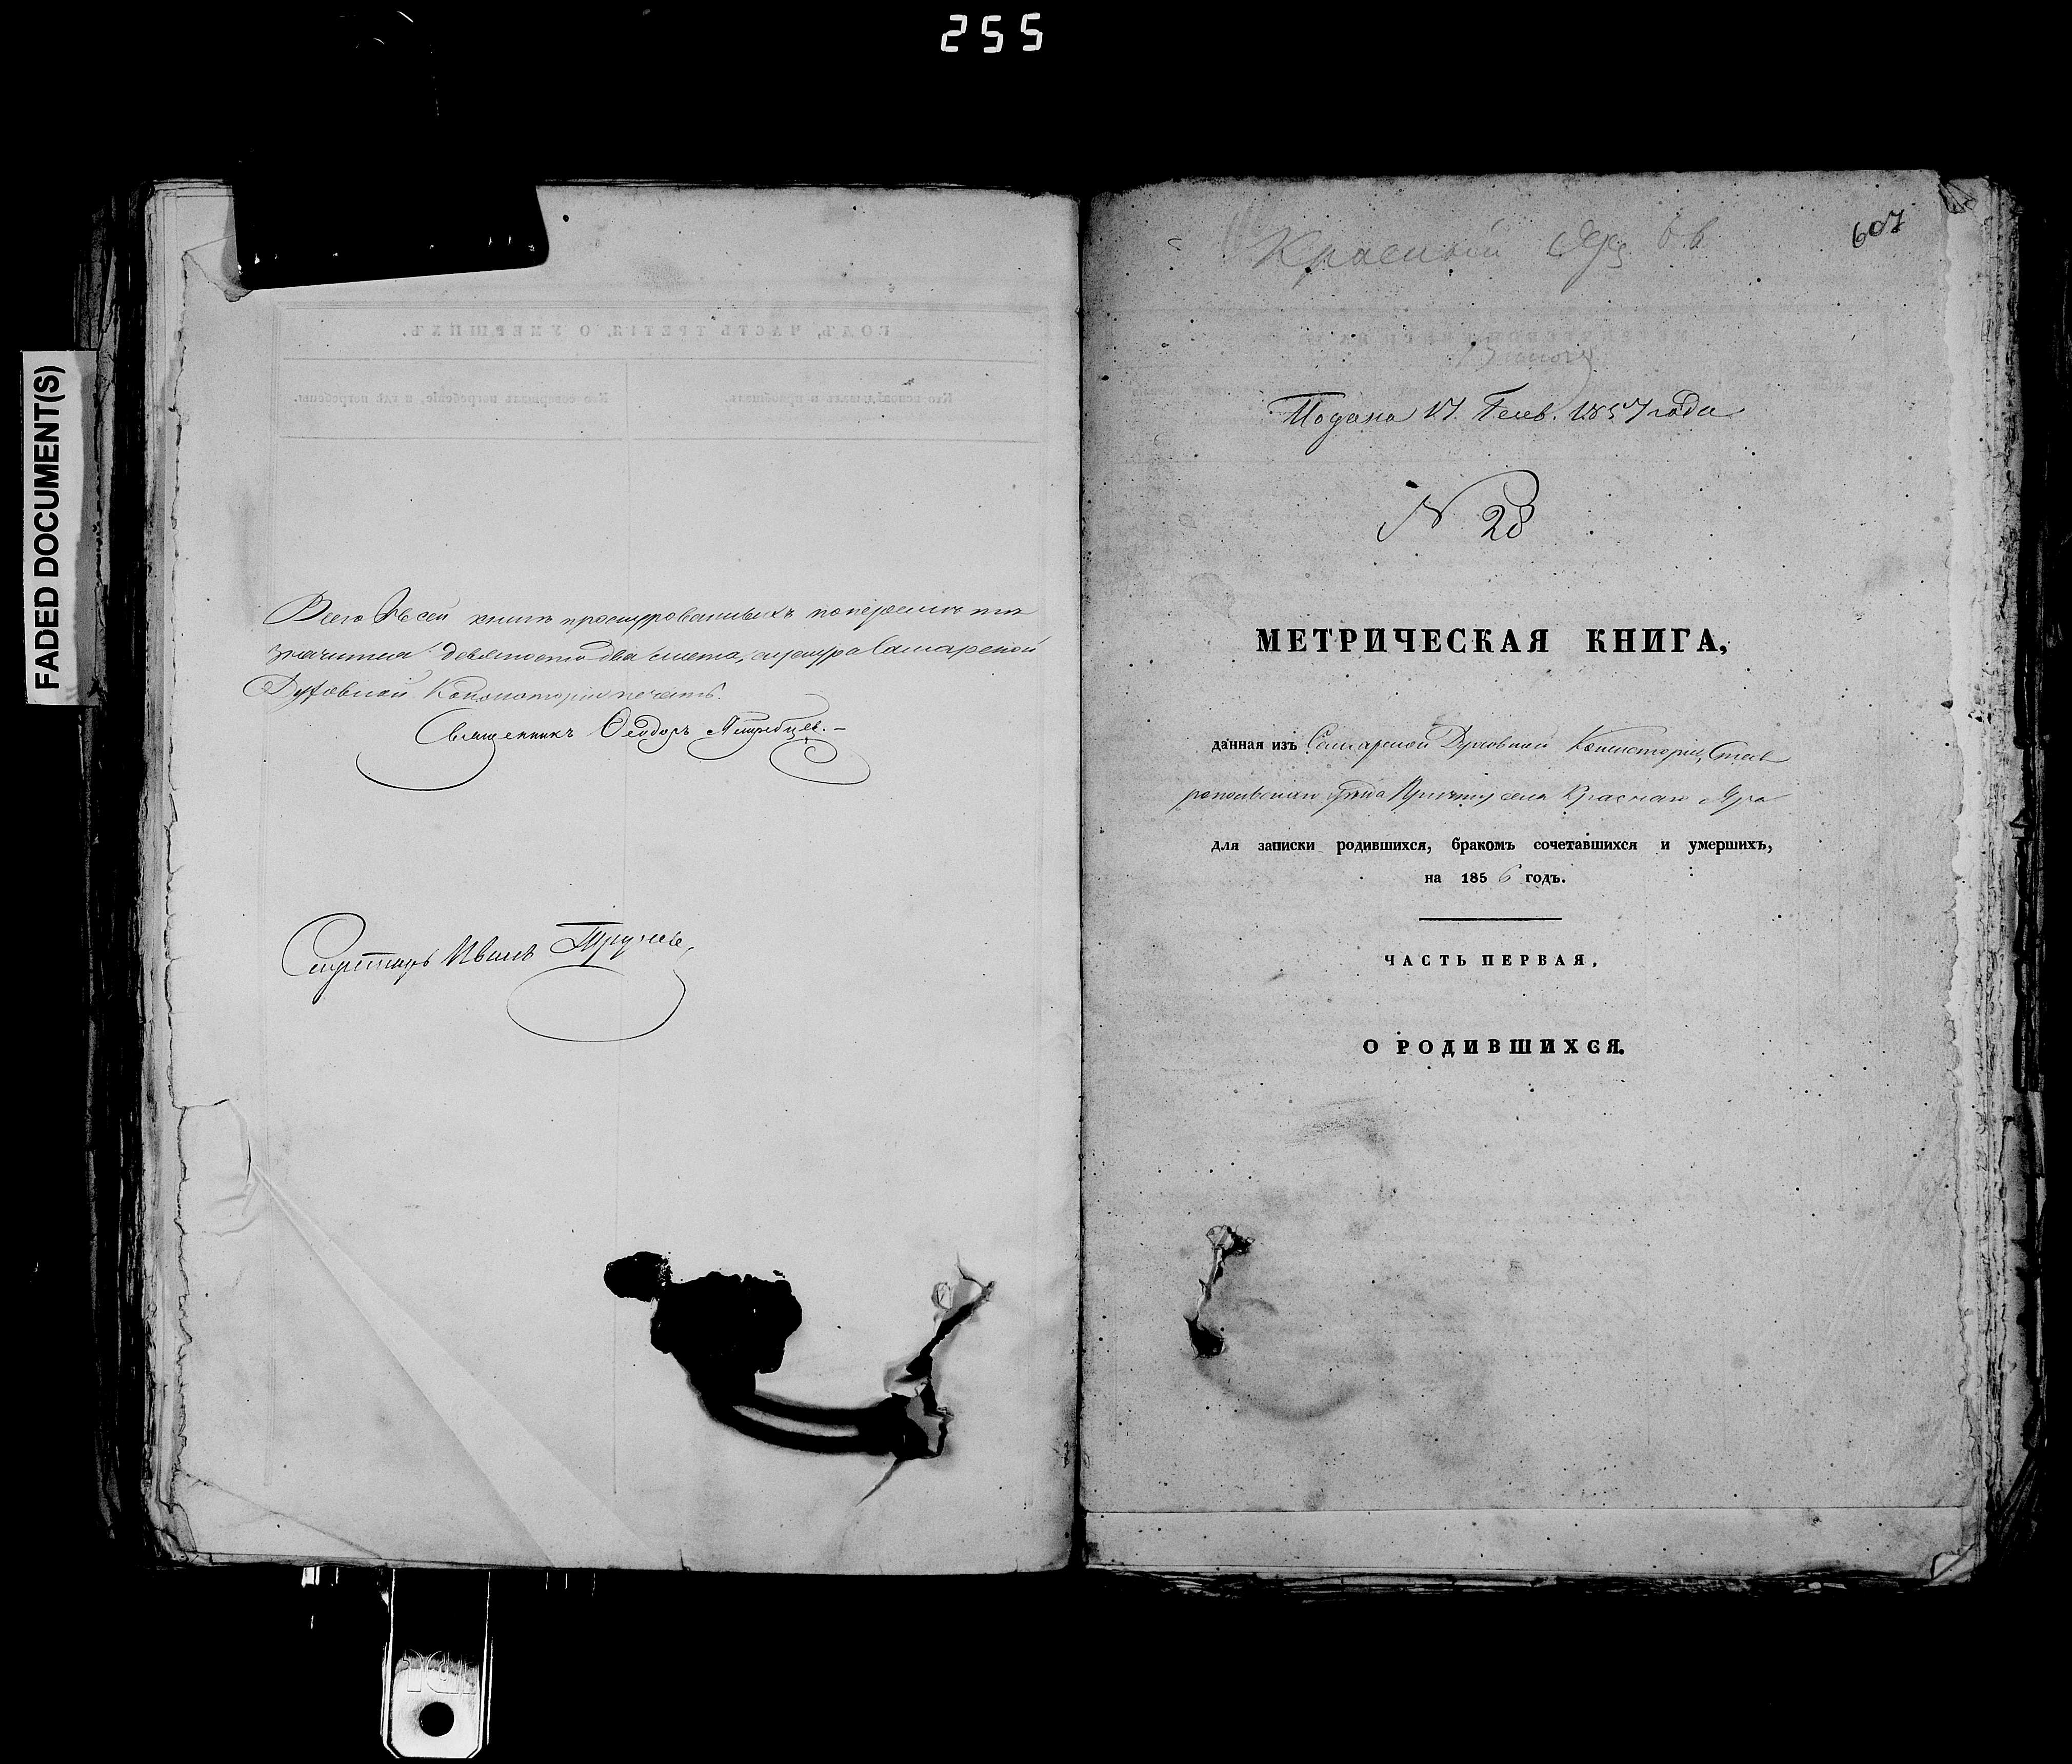 255
FADED DOCUMENT(S)
ГОДЪ, ЧАСТЬ ТРЕТІЯ, О УМЕРШИХЪ.
Кто исповѣдывалъ и пріобщалъ.
Кто совершалъ погребеніе, и гдѣ погребены.
Всего въ сей книгѣ прошнурованныхъ
значится девяносто два листа, шнура Самарской
Духовной Консисторіи печать.
Священникъ Ѳеодоръ
Секретарь Иванъ
607
Красный Яръ
Подана 17 Генв. 1857 года
N 28
МЕТРИЧЕСКАЯ КНИГА,
данная изъ Самарской Духовной Консисторіи, Став
ропольскаго уѣзда Причту села Краснаго Яра
для записки родившихся, бракомъ сочетавшихся и умершихъ,
на 1856 годъ.
ЧАСТЬ ПЕРВАЯ,
О РОДИВШИХСЯ.